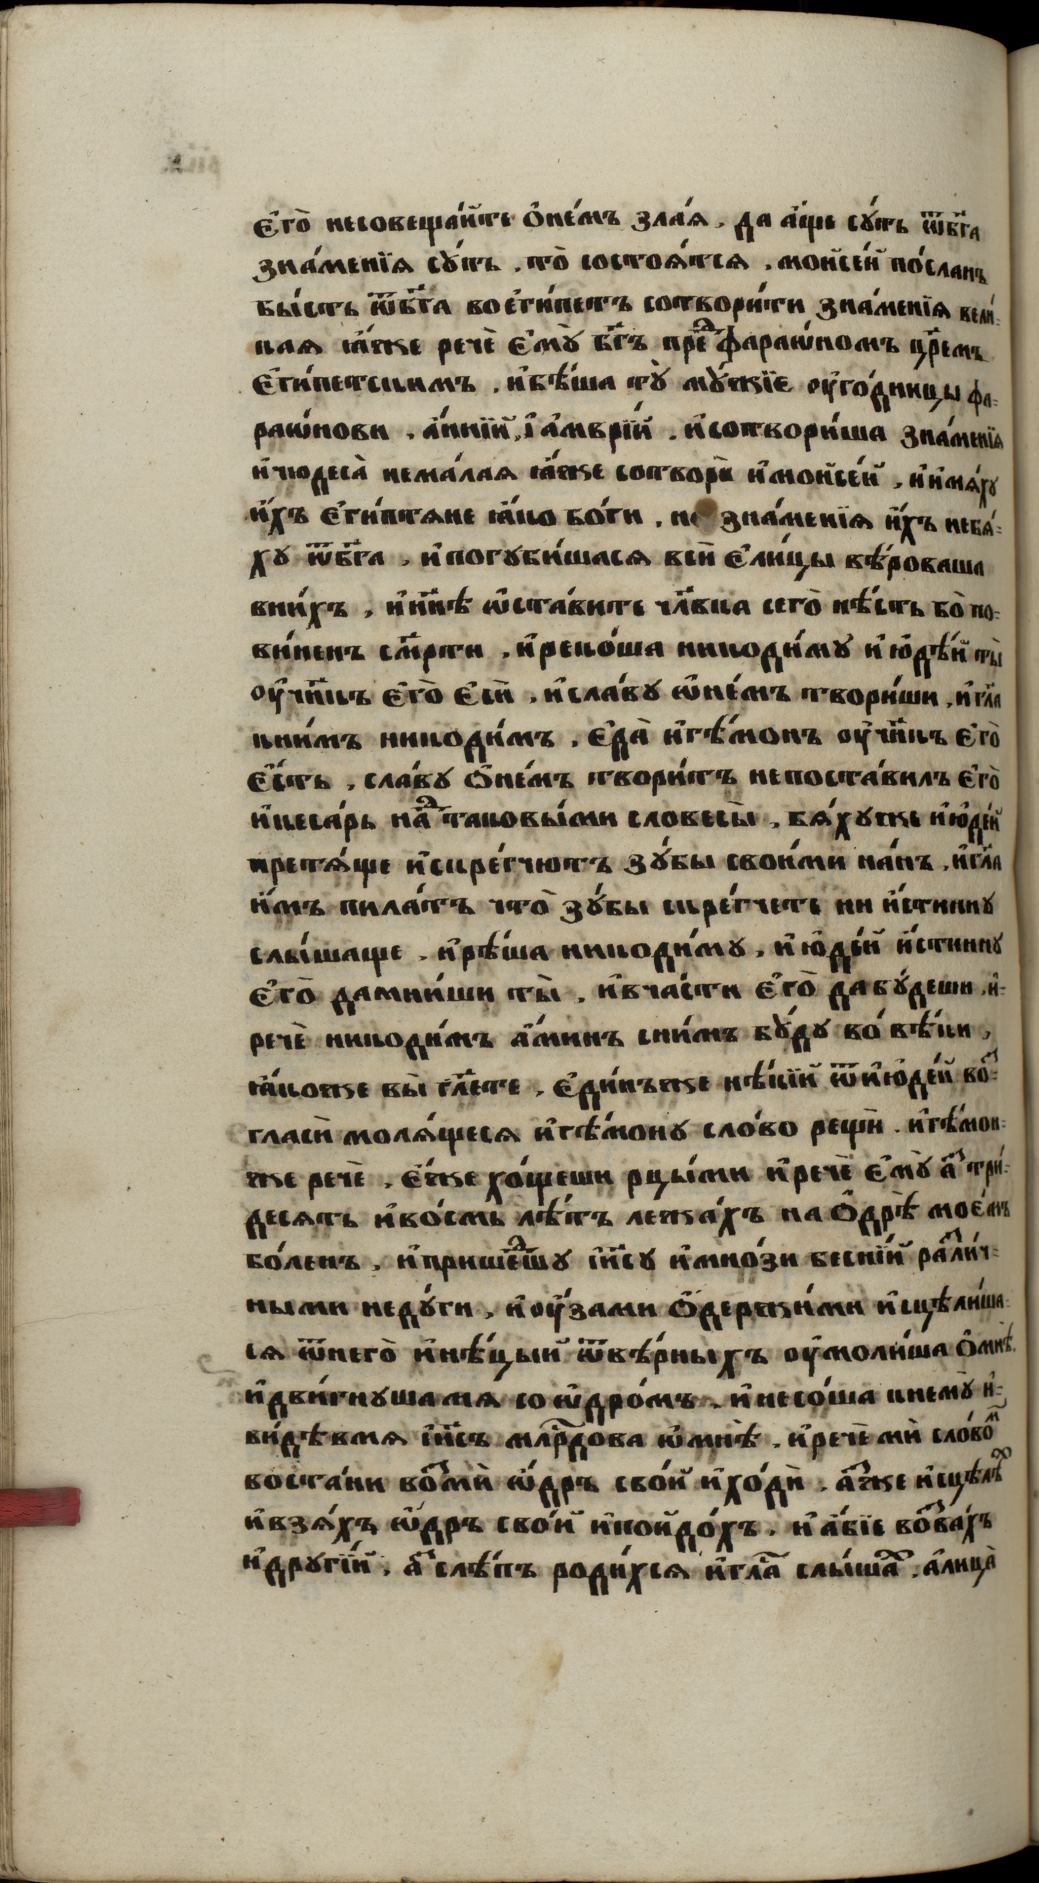 є҆го̀ несовеща́йте ѻ҆не́мъ зла́ѧ . да а҆́ще сꙋ́ть ѿбг҃а
зна́менїѧ сꙋ́ть . то̀ состоѧ́тсѧ . моѝсе́й по́сланъ
бы́сть ѿбг҃а воє҆ги́петъ сотвори́ти зна́менїѧ вели́-
каѧ ꙗ҆́же речѐ є҆мꙋ̀ бг҃ъ преⷣ фараѡ́номъ цр҃емъ
є҆ги́петскимъ . и҆бѣ́ша тꙋ̀ мꙋ́жїє ѹ҆го́дницы фа-
раѡ́нови . а҆́нній, і҆а҆́мврїй . и҆сотвори́ша зна́менїѧ
и҆чюдеса̀ нема́лаѧ ꙗ҆́же сотворѝ и҆моѝсе́й , и҆и҆мѧ́хꙋ
и҆́хъ є҆ги́птѧне ꙗ҆́ко бо́ги . но зна́менїѧ и҆́хъ небѧ́-
хꙋ ѿбг҃а , и҆погꙋби́шасѧ всѝ є҆ли́цы вѣ́роваша
вни́хъ , и҆нн҃ѣ ѡ҆ста́вите чл҃вка сего̀ нѣ́сть бо̀ по-
ви́ненъ см҃рти . и҆реко́ша никоди́мꙋ и҆ю҆дѣ́й ты̀
ѹ҆чн҃къ є҆го̀ є҆сѝ , и҆сла́вꙋ ѡ҆не́мъ твори́ши , и҆гл҃а
кни́мъ никоди́мъ , є҆да̀ и҆гѣ́монъ ѹ҆чн҃къ є҆го̀
є҆́сть , сла́вꙋ ѻ҆не́мъ твори́тъ непоста́вилъ є҆го̀
и҆кеса́рь наⷣ таковы́ми словесы̀ , бѧ́хꙋже и҆ю҆де́й
претѧ́ще и҆скре́гчютъ зꙋ́бы свои́ми на́нъ . и҆гл҃а
и҆́мъ пила́тъ что̀ зꙋ́бы скре́гчете ни и҆́стиннꙋ
слы́шаще . и҆рѣ́ша никоди́мꙋ , и҆ю҆де́й и҆́стиннꙋ
є҆го̀ дамни́ши ты̀ , и҆вча́сти є҆го̀ дабꙋ́деши . и҆-
речѐ никоди́мъ а҆ми́нъ сни́мъ бꙋ́дꙋ во́ вѣ́ки ,
ꙗ҆́коже вы̀ гл҃ете , є҆ди́нъже нѣ́кїй ѿи҆ю҆де́й воⷥ-
гласѝ молѧ́щесѧ и҆гѣ́монꙋ сло́во рещѝ . и҆гѣ́мон-
же речѐ , є҆́же хо́щеши рцы́ми и҆речѐ є҆мꙋ̀ аⷥ҆ три́-
десѧть и҆во́смь лѣ́тъ лежа́хъ на ѻ҆дрѣ̀ мое́мъ
бо́ленъ , и҆пришеⷣшꙋ і҆и҃сꙋ и҆мно́зи беснїй раⷥли́ч-
ными недꙋ́ги , и҆ѹ҆́зами ѻ҆держи́ми и҆сцѣли́ша-
сѧ ѿнего̀ и҆нѣ́цый ѿвѣ́рныхъ ѹ҆моли́ша ѻ҆мнѣ̀.
и҆дви́гнꙋшамѧ со ѡ҆дро́мъ , и҆несо́ша кнемꙋ̀ и҆-
ви́дѣвмѧ і҆и҃съ млⷭ҇рдова ѡ҆мнѣ̀ . и҆речѐ мѝ сло́воⷨ
воста́ни воⷥмѝ ѡ҆́дръ сво́й и҆ходѝ . аⷥ҆же и҆сцѣлѣⷯ
и҆взѧ́хъ ѡ҆́дръ сво́й и҆пойдо́хъ . и҆ а҆́бїе воⷥва́хъ
и҆дрꙋгі́й , аⷥ҆ слѣ́пъ роди́хсѧ и҆гл҃а слы́шаⷯ , а҆лица̀